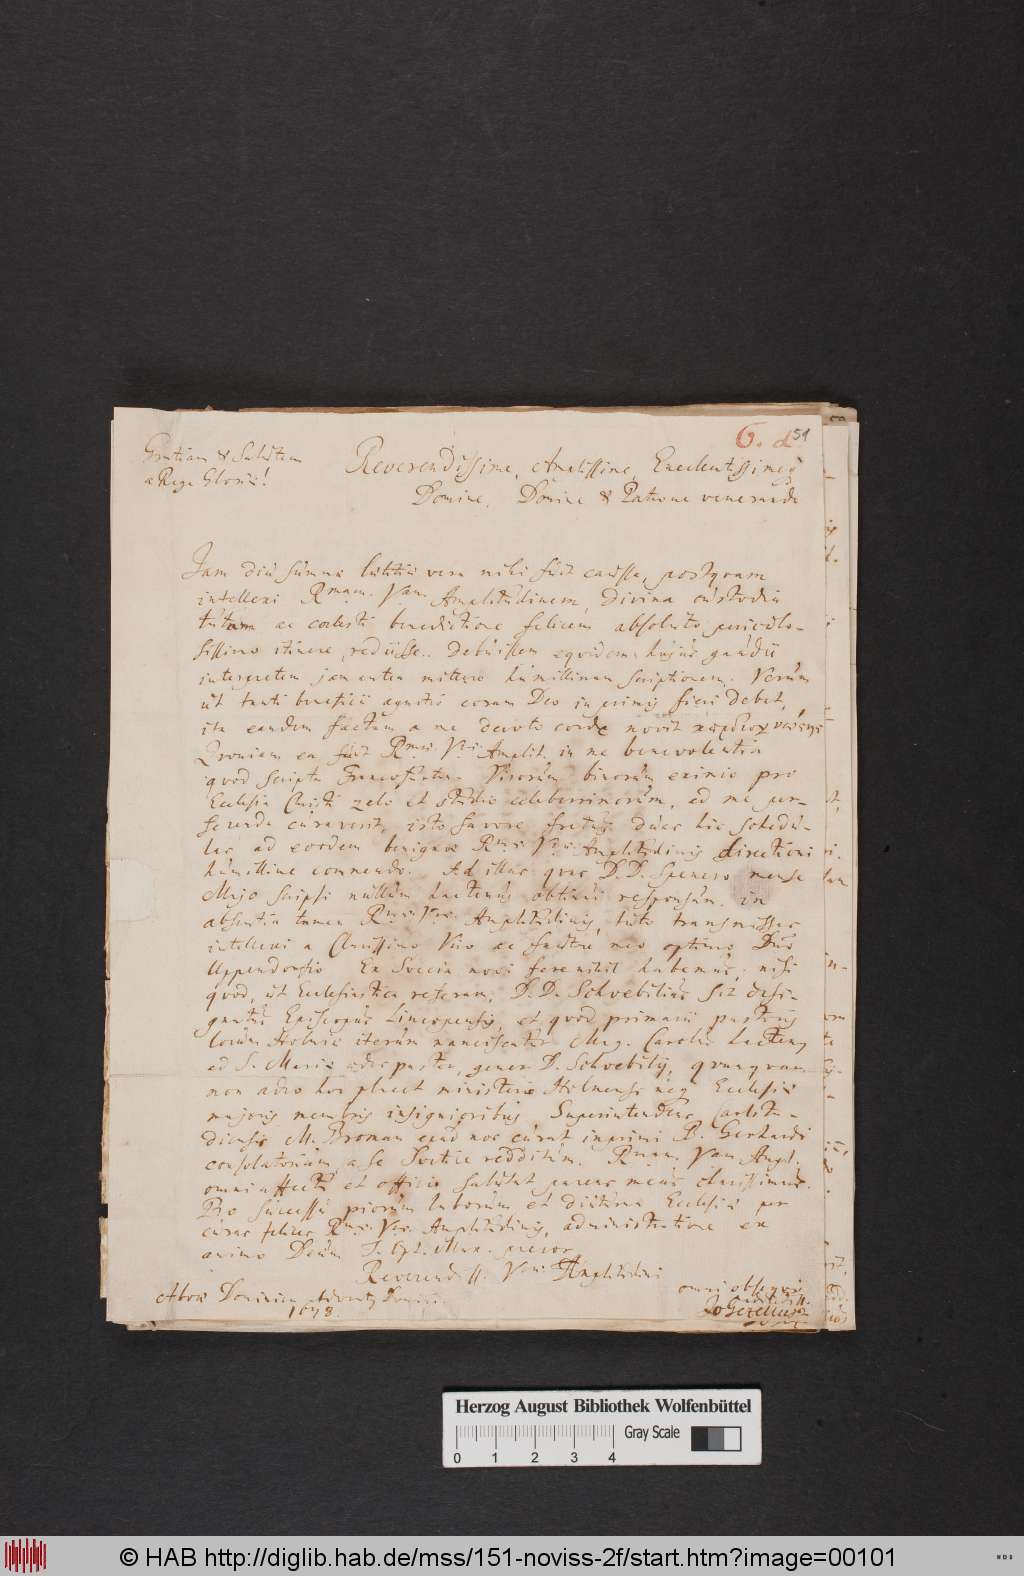 G. d 51
Gratiam & Salutem
a Rege Gloriæ!
Reverendissime, Amplissime, Excellentissimeq
Domine, Domine & Patrone venerande
Jam diu summæ lætitiæ vera mihi fuit caussa, postquam
intellexi Rmam. Vam. Amplitudinem, Divina custodia
tutam ac coelesti benedictione felicem absoluto periculo-
sissimo itinere, rediisse. Debuissem equidem hujus gaudii
interpretem jam antea mittere humillimam scriptionem. Verum
ut tanti beneficii agnitio coram Deo in primis fieri debet,
ita eandem factam a me devoto corde novit
Qvoniam ea fuit Rmæ. Væ. Amplit. in me benevolentia
quod scripta Virorum binorum eximio pro
Ecclesia Christi zelo et studio celeberrimorum, ad me per-
ferenda curaverit, isto favore fretus duas has schedu-
las ad eosdem benignæ Rmæ. Væ. Amplitudinis directioni
humillime commendo. Ad illas quas D.D. Spenero mense
Majo scripsi nullum hactenus obtinui responsum, in
absentia tamen Rmæ. Væ. Amplitudinis, tuto transmissas
intellexi a Clarissimo Viro ac fautore meo optimo Dno
Uppendorfio Ex Svecia novi fere nihil habemus, nisi
quod, ut Ecclesiastica referam, D.D. Svebilius sit desi-
gnatus Episcopus Lincopensis, et quod primarii pastoris
locum Holmiæ iterum nanciscatur Mag. Carolus
ad S. Mariæ ædes pastor, gener D. Svebilii, qvanqvam
non adeo hoc placet ministerio Holmensi neq Ecclesiæ
majoris membris insignioribus. Superintendens Carlsta-
diensis M. Broman apud nos curat imprimi B. Gerhardi
consolatorium, a se Svetice redditum. Rmam. Vam. Ampl.
omni affectu et officio salutat parens meus clarissimus.
Pro successu piorum laborum et diuturna Ecclesiæ per
curas felices Rmæ. Væ. Amplitudinis, administratione ex
animo Deum T. Opt. Max. precor
Reverendiss. Væ. Amplitudini
Aboæ Dominica Adventus Domini
1678.
omni obsequio
addictiss.
Jo Gezelius
Herzog August Bibliothek Wolfenbüttel
Gray Scale
0 1 2 3 4
© HAB http://diglib.hab.de/mss/151-noviss-2f/start.htm?image=00101